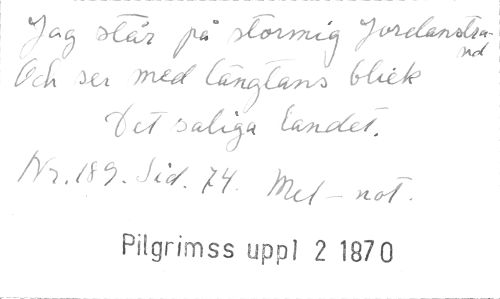 Jag står på stormig Jordanstra-
nd
Och ser med längtans blick
Det saliga landet.
Nr. 189. Sid. 74. Mel-not.
Pilgrimss uppl 2 1870